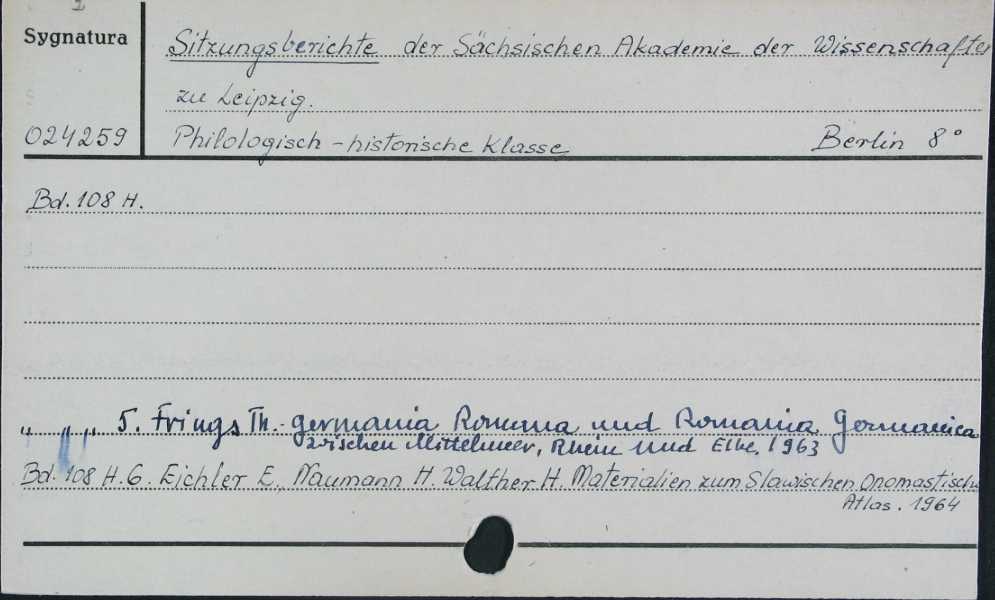 Sygnatura
Sitzungsberichte der Sächsischen Akademie der Wissenschaften
zu Leipzig.
024259 Philologisch-historische Klasse Berlin 8°
Bd. 108 H.
" " " 5. Frings Th. - Germania Romana und Romania Germanica
zwischen Mittelmeer, Rhein und Elbe, 1963
Bd. 108 H. 6. Eichler E., Naumann H. Walther H. Materialien zum Slawischen Onomastisch
Atlas. 1964